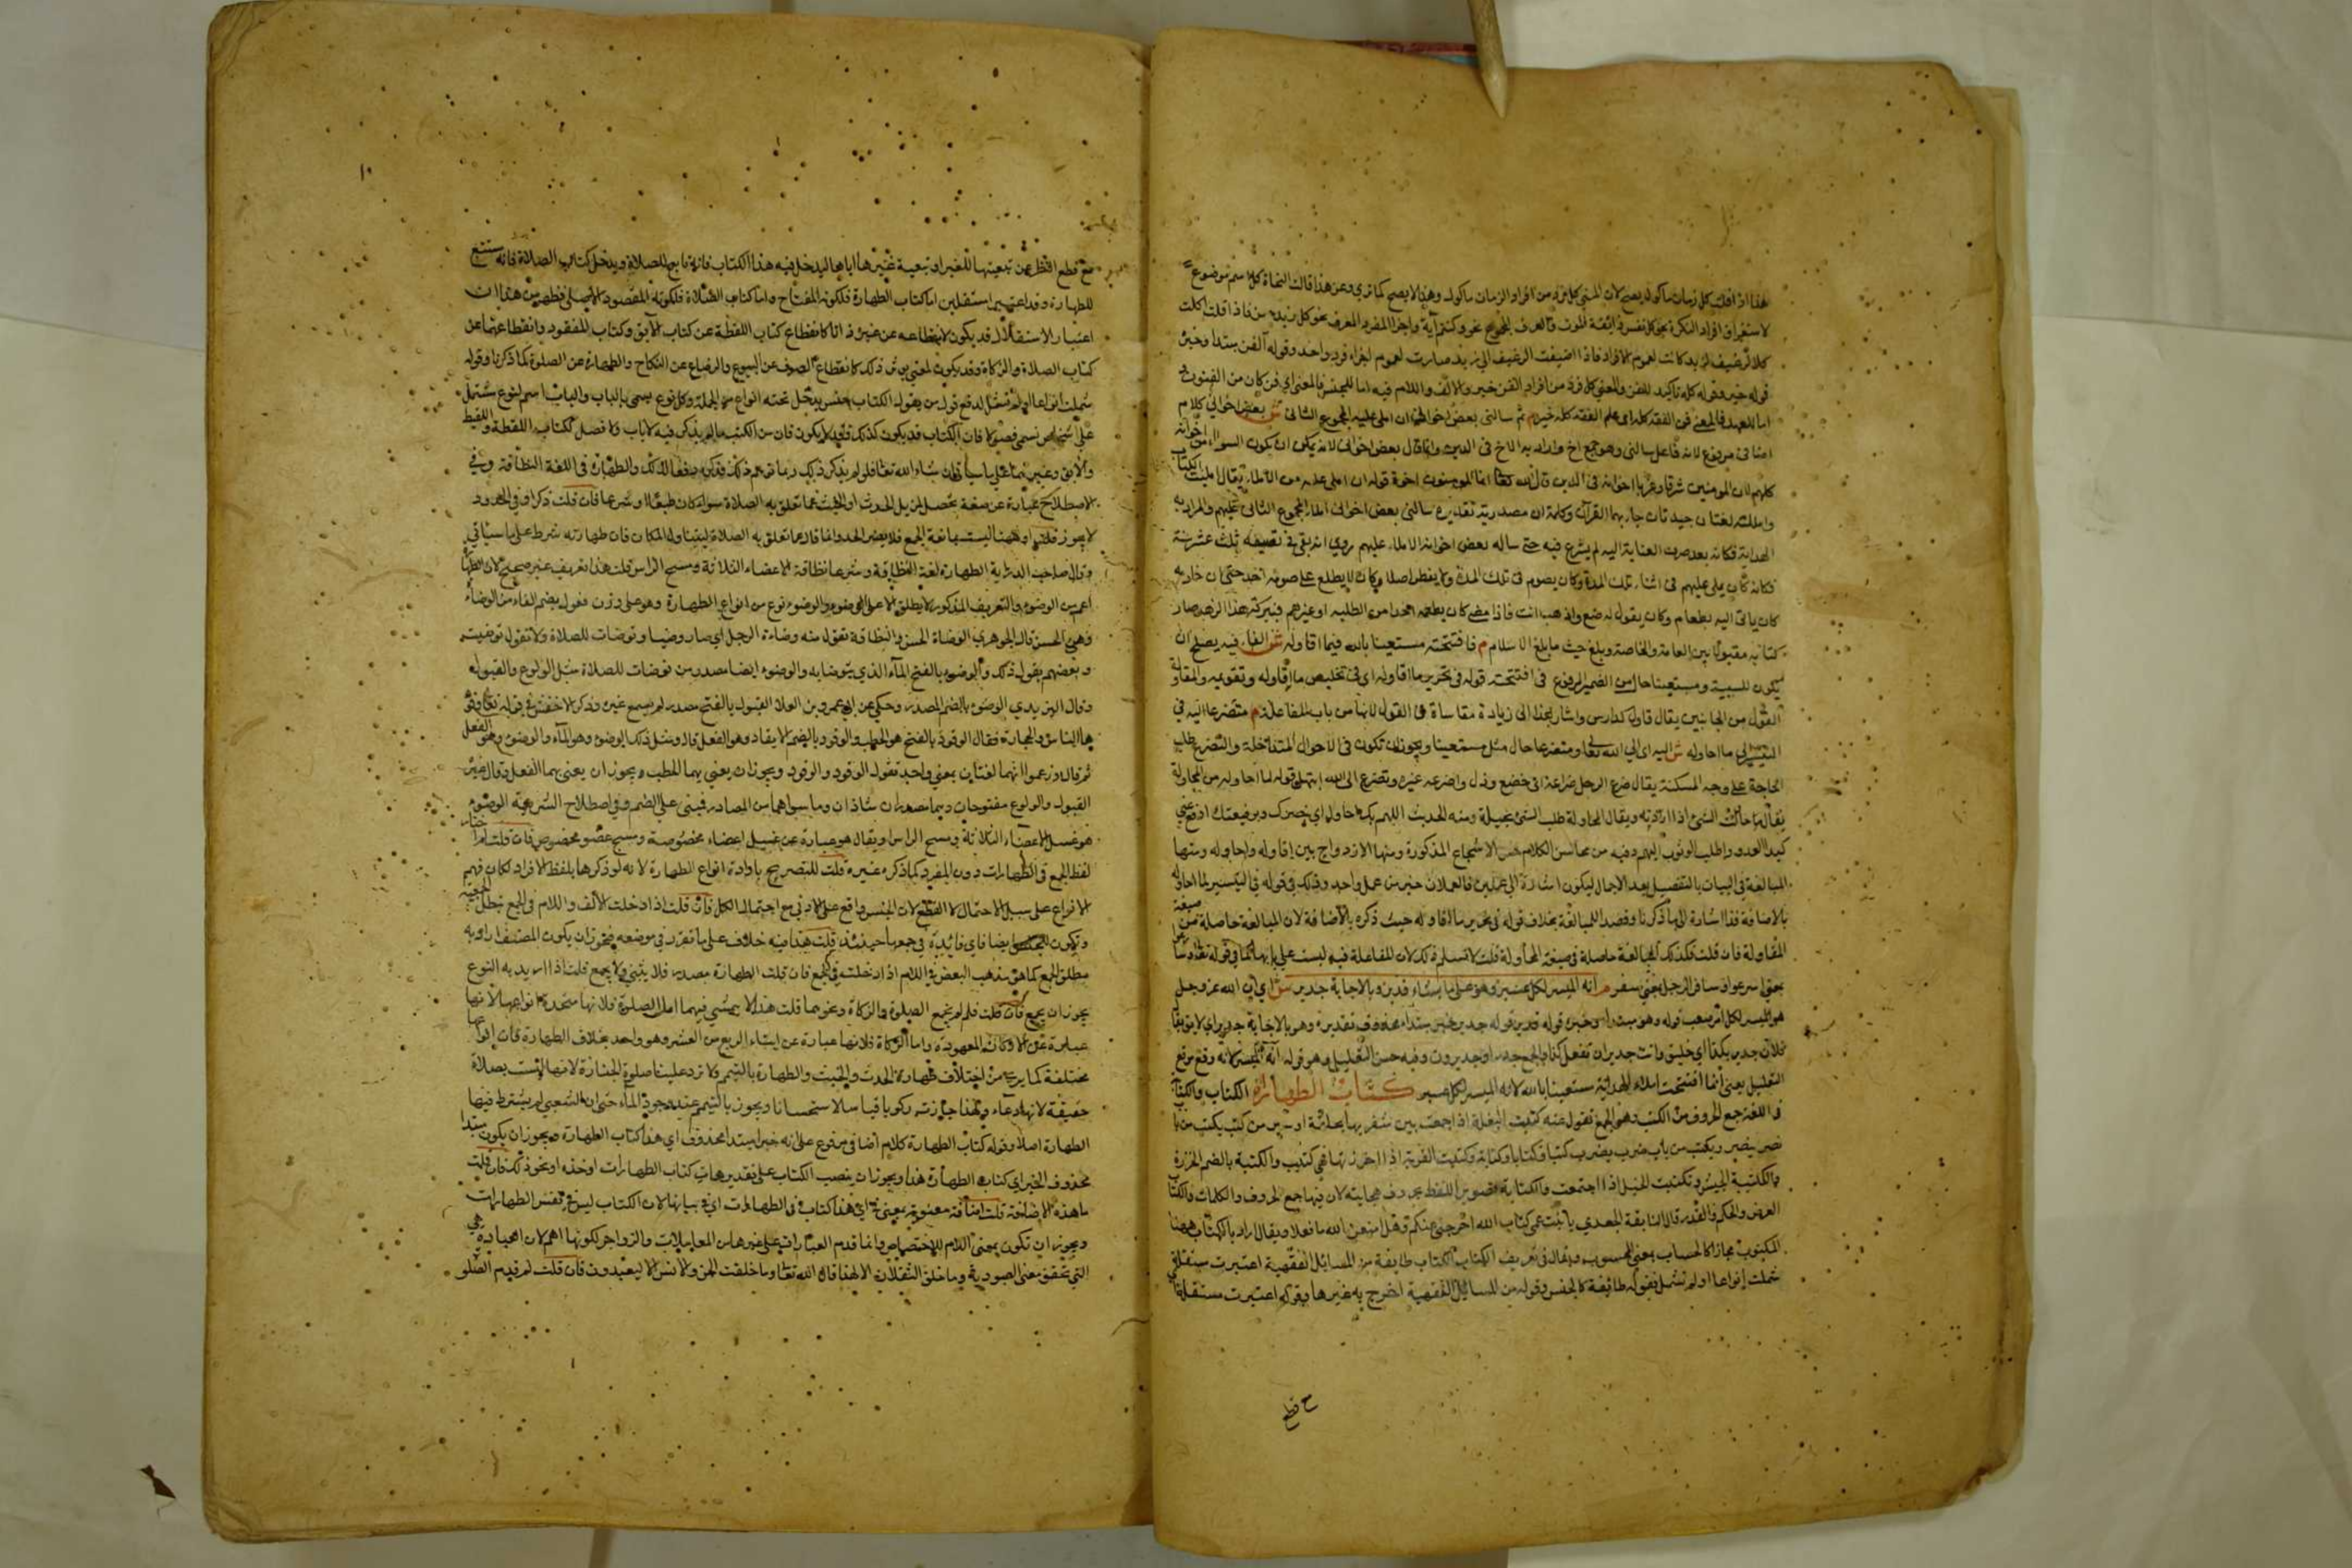 هذا اذا قلت كل زمان ماكول يصح لان المعنى كل فرد من افراد الزمان ماكول وهذا لا يصح كما ترى وعن هذا قالت النحاة كل اسم موضوع
لاستغراق افراد النكرة نحو كل نفس ذائقة الموت والمعرف المجموع نحو وكلهم آتيه واجزا المفرد المعرف نحو كل زيد حسن فاذا قلت اكلت
كل رغيف لزيد كانت لعموم الافراد فاذا اضيفت الرغيف الى زيد صارت لعموم اجزاء فرد واحد وقوله الفن مبتدا وخبره
قوله خير وقوله كله تاكيد للفن والمعنى كل فرد من افراد الفن خير والالف واللام فيه اما للجنس فالمعنى اى فن كان من الفنون
اما للعهد فالمعنى فن الفقه كله اى علم الفقه كله خير م ثم سالنى بعض اخوانى ان املى عليه المجموع الثانى ش بعض اخوانى كلام
اضافى مرفوع لانه فاعل سالنى وهو جمع اخ واراد به الاخ فى الدين وانما قال بعض اخوانى لانه يمكن ان يكون السوال من اخوانه
كلهم لان المومنين شرقا وغربا اخوانه فى الدين قال الله تعالى انما المومنون اخوة قوله ان املى عليه من الاملاء يقال امليت الكتاب
وامللته لغتان جيدتان جاء بهما القرآن وكلمة ان مصدرية تقديره سالنى بعض اخوانى املاء المجموع الثانى عليهم والمراد به
الهداية فكانه بعد صرف العناية اليه لم يشرع فيه حتى ساله بعض اخوانه الاملاء عليهم روى انه بقى فى تصنيفه ثلث عشرة سنة
فكانه كان يملى عليهم فى اثناء تلك المدة وكان يصوم فى تلك المدة ولا يفطر اصلا وكان لا يطلع على صومه احد حتى ان خادمه
كان ياتى اليه بطعام وكان يقول له ضع واذهب انت فاذا مضى كان يطعمه احدا من الطلبة او غيرهم فببركة هذا الزهد صار
كتابه مقبولا بين العامة والخاصة وبلغ حيث ما بلغ الاسلام م فافتتحته مستعينا بالله فيما اقاوله ش الفاء فيه يصلح ان
يكون للسببية ومستعينا حال من الضمير المرفوع فى افتتحت قوله فى تحرير ما اقاوله اى فى تخليص ما اقاوله وتقويمه والمقاولة
القول من الجانبين يقال قاول كدارس واشار بهذا الى زيادة مقاساة فى القول لانها من باب المفاعلة م متضرعا اليه فى
التيسير لما احاوله ش اليه اى الى الله تعالى ومتضرعا حال مثل مستعينا ويجوز ان تكون فى الاحوال المتداخلة والتضرع طلب
الحاجة على وجه المسكنة يقال ضرع الرجل ضراعة اى خضع وذل واضرعه غيره وتضرع الى الله ابتهل وقوله لما احاوله من المحاولة
يقال حاولت الشئ اذا اردته ويقال المحاولة طلب الشئ بحيلة ومنه الحديث اللهم بك احاول اى بنصرك
كيد العدو واطلب الوثوب اليهم وفيه من محاسن الكلام حسن الاسجاع المذكورة ومنها الازدواج بين اقاوله واحاوله ومنها
المبالغة فى البيان بالتفصيل بعد الاجمال ليكون اشارة الى عملين فالعملان خير من عمل واحد وذلك فى قوله فى التيسير لما احاوله
بالاضافة قد اشارة الى ما ذكرنا وقصد المبالغة بخلاف قوله فى تحرير ما اقاوله حيث ذكره بالاضافة لان المبالغة حاصلة من صيغة
المقاولة فان قلت فكذلك المبالغة حاصلة فى صيغة المحاولة قلت لا نسلم ذلك لان المفاعلة فيه ليست على بابها كما فى قوله تعالى وسارعوا
بمعنى اسرعوا وسافر الرجل بمعنى سفر م انه الميسر لكل عسير وهو على ما يشاء قدير وبالاجابة جدير ش اى ان الله عز وجل
هو الميسر لكل امر صعب قوله وهو مبتدا وخبره قوله قدير قوله جدير خبر مبتدا محذوف تقديره وهو بالاجابة جدير اى لايق يقال
فلان جدير بكذا اى خليق وانت جدير ان تفعل كذا والجمع جدراء وجديرون وفيه حسن التعليل وهو قوله انه الميسر لانه وقع موقع
التعليل يعنى انما افتتحت املاء الهداية مستعينا بالله لانه الميسر لكل عسير كتاب الطهارة الكتاب والكتابة
فى اللغة جمع الحروف من الكتب وهو الجمع تقول منه كتبت البغلة اذا جمعت بين شفريها بحلقة او سير من كتب يكتب من باب
نصر ينصر ويكتب من باب ضرب يضرب كتبا وكتابا وكتابة وكتبت القربة اذا خرزتها فهى كتيب والكتبة بالضم الخرزة
والكتيبة الجيش وتكتبت الخيل اذا اجتمعت والكتابة تصوير اللفظ بحروف هجايئه لان فيها جمع الحروف والكلمات والكتاب
الفرض والحكم والقدر قال النابغة الجعدى يا بنت عمى كتاب الله اخرجنى عنكم وهل امنعن الله ما فعلا ويقال اراد بالكتاب ههنا
المكتوب مجازا كالحساب بمعنى المحسوب ويقال فى تعريف الكتاب الكتاب طايفة من المسايل الفقهية اعتبرت مستقلة
شملت انواعا او لم تشمل فقوله طائفة كالجنس وقوله من المسائل الفقهية اخرج به غيرها وقوله اعتبرت مستقلة اى
١٠
مع قطع النظر عن تبعيتها للغير او تبعية غيرها اياها ليدخل فيه هذا الكتاب فانه تابع للصلاة ويدخل كتاب الصلاة فانه مستتبع
للطهارة وقد اعتبرا مستقلين اما كتاب الطهارة فلكونه المفتاح واما كتاب الصلاة فلكونه المقصود الاصلى فظهر من هذا ان
اعتبار الاستقلال قد يكون لانقطاعه عن غيره ذاتا كانقطاع كتاب اللقطة عن كتاب الآبق وكتاب المفقود وانقطاعهما عن
كتاب الصلاة والزكاة وقد يكون لمعنى يورث ذلك كانقطاع الصرف عن البيوع والرضاع عن النكاح والطهارة عن الصلوة كما ذكرنا وقوله
شملت انواعا او لم تشمل لدفع قول من يقول الكتاب جنس يدخل تحته انواع من الجملة وكل نوع يسمى بالباب والباب اسم لنوع يشتمل
على اشخاص تسمى فصولا فان الكتاب قد يكون كذلك وقد لا يكون فان من الكتب ما لم يذكر فيه لا باب ولا فصل ككتاب اللقطة واللقيط
والآبق وغيرهما على ما سياتى ان شاء الله تعالى فلو لم يذكر ذلك ربما توهم ذلك فذكره دفعا لذلك والطهارة فى اللغة النظافة وفى
الاصطلاح عبارة عن صفة تحصل لمزيل الحدث او الخبث عما تتعلق به الصلاة سواء كان طبعا او شرعا فان قلت ذكر او فى الحدود
لا يجوز قلت او ههنا ليست مانعة الجمع فلا يضر الحد وانما قال عما تتعلق به الصلاة ليتناول المكان فان طهارته شرط على ما سياتى
وقال صاحب الدراية الطهارة لغة النظافة وشرعا نظافة الاعضاء الثلاثة ومسح الراس قلت هذا تعريف غير صحيح لان الطهارة
اعم من الوضوء والتعريف المذكور لا يطلق الا على الوضوء والوضوء نوع من انواع الطهارة وهو على وزن فعول بضم الفاء من الوضاءة
وهى الحسن قال الجوهرى الوضاة الحسن والنظافة تقول منه وضاءة الرجل اى صار وضيا وتوضات للصلاة ولا تقول توضيت
وبعضهم يقول ذلك والوضوء بالفتح الماء الذى يتوضا به والوضوء ايضا مصدر من توضات للصلاة مثل الولوع والقبول
وقال اليزيدى الوضوء بالضم المصدر وحكى عن ابى عمرو بن العلا القبول بالفتح مصدر لم نسمع غيره وذكر الاخفش فى قوله تعالى وقو
دها الناس والحجارة فقال الوقود بالفتح هو الحطب والوقود بالضم الايقاد وهو الفعل قال ومثل ذلك الوضوء وهو الماء والوضوء وهو الفعل
ثم قال وزعموا انهما لغتان بمعنى واحد تقول الوقود والوقود ويجوز ان يعنى بهما الحطب ويجوز ان يعنى بهما الفعل وقال غيره
القبول والولوع مفتوحان وهما مصدران شاذان وما سواهما من المصادر فمبنى على الضم وفى اصطلاح الشريعة الوضوء
هو غسل الاعضاء الثلاثة ومسح الراس او يقال هو عبارة عن غسل اعضاء مخصوصة ومسح عضو مخصوص فان قلت لم اختار
لفظ الجمع فى الطهارات دون المفرد كما ذكره غيره قلت للتصريح بارادة انواع الطهارة لانه لو ذكرها بلفظ الافراد لكان فهم
الانواع على سبيل الاحتمال لا القطع لان الجنس واقع على الادنى مع احتمال الكل فان قلت اذا دخلت الالف واللام فى الجمع تبطل الجمعية
وتكون للجنس ايضا فاى فايدة فى جمعها حينئذ قلت هذا فيه خلاف على ما تقرر فى موضعه فيجوز ان يكون المصنف اراد به
مطلق الجمع كما هو مذهب البعض فى اللام اذا دخلت فى الجمع فان قلت الطهارة مصدر فلا يثنى ولا يجمع قلت اذا اريد به النوع
يجوز ان يجمع فان قلت فلم لم يجمع الصلوة والزكاة ونحوهما قلت هذا لا يمشى فيهما اما الصلوة فلانها متحدة انواعها لانها
عبارة عن الاركان المعهودة واما الزكاة فلانها عبارة عن ايتاء الربع من العشر وهو واحد بخلاف الطهارة فان انواعها
مختلفة كما يرى من اختلاف طهارة الحدث والخبث والطهارة بالتيمم ولا ترد علينا صلوة الجنازة لانها ليست بصلاة
حقيقة لانها دعاء ولهذا جازت ركوبا قياسا لا استحسانا ويجوز بالتيمم عند وجود الماء حتى ان الشعبى لم يشترط فيها
الطهارة اصلا وقوله كتاب الطهارة كلام اضافى مرفوع على انه خبر مبتدا محذوف اى هذا كتاب الطهارة ويجوز ان يكون مبتدا
محذوف الخبر اى كتاب الطهارة هذا ويجوز ان ينصب الكتاب على تقدير هات كتاب الطهارات او خذه او نحو ذلك فان قلت
ما هذه الاضافة قلت اضافة معنوية بمعنى فى اى هذا كتاب فى الطهارات اى فى بيانها لان الكتاب ليس فى نفس الطهارات
ويجوز ان تكون بمعنى اللام للاختصاص وانما قدم العبادات على غيرها من المعاملات والزواجر لكونها اهم لان العبادة هى
التى تحقق معنى العبودية وما خلق الثقلان الا لهذا قال الله تعالى وما خلقت الجن والانس الا ليعبدون فان قلت لم قدم الصلو